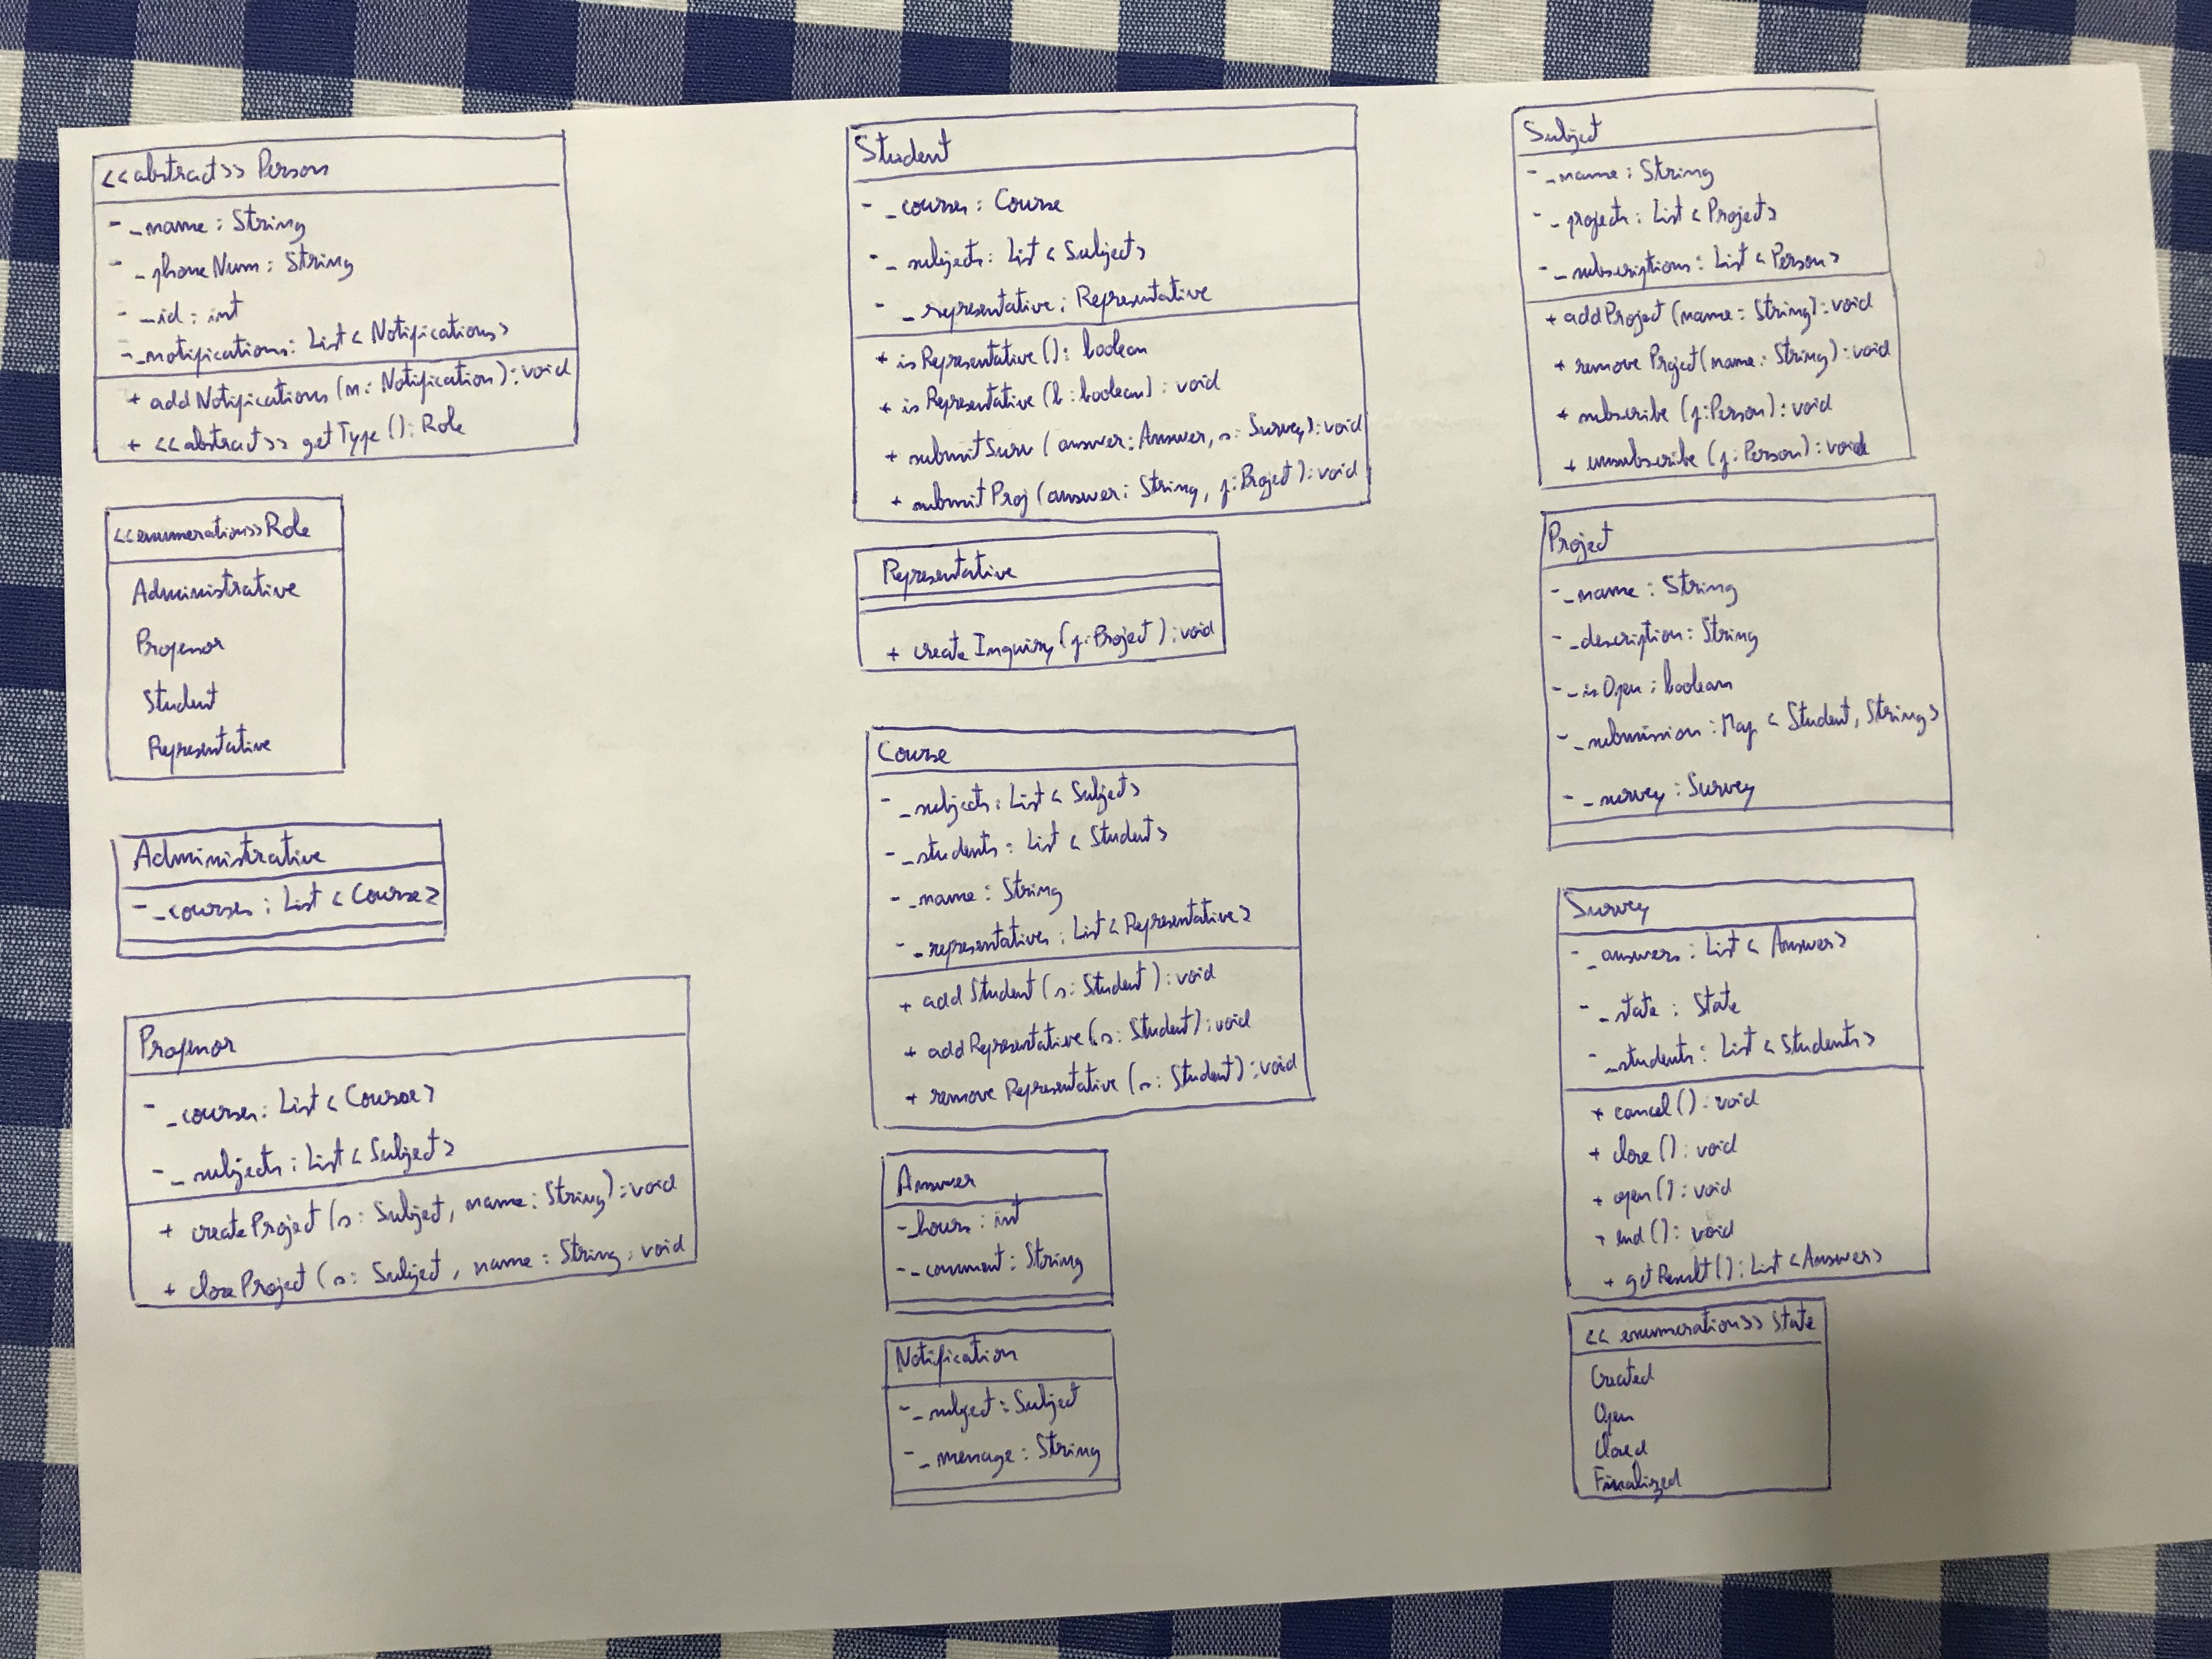 <<abstract>> Person
- _name : String
- _phoneNum : String
- _id : int
- _notifications : List < Notifications>
+ addNotifications (n: Notification) : void
+ <<abstract>> getType () : Role
<<enumeration>> Role
Administrative
Professor
Student
Representative
Administrative
- _courses : List < Course>
Professor
- _courses : List < Course>
- _subjects : List < Subject>
+ createProject (s: Subject, name : String) : void
+ closeProject (s: Subject, name : String : void
Student
- _courses : Course
- _subjects : List < Subjects>
- _representative : Representative
+ isRepresentative () : boolean
+ isRepresentative (b : boolean) : void
+ submitSurv (answer: Answer, s: Survey) : void
+ submitProj (answer: String, p: Project) : void
Representative
+ createInquiry (p: Project) : void
Course
- _subjects : List < Subject>
- _students : List < Student>
- _name : String
- _representatives : List < Representative>
+ addStudent (s: Student) : void
+ addRepresentative (s: Student) : void
+ removeRepresentative (s: Student) : void
Answer
- _hours : int
- _comment : String
Notification
- _subject : Subject
- _message : String
Subject
- _name : String
- _projects : List < Project>
- _subscriptions : List < Person>
+ addProject (name : String) : void
+ removeProject (name : String) : void
+ subscribe (p: Person) : void
+ unsubscribe (p: Person) : void
Project
- _name : String
- _description : String
- _isOpen : boolean
- _submission : Map < Student, String>
- _survey : Survey
Survey
- _answers : List < Answer>
- _state : State
- _students : List < Students>
+ cancel () : void
+ close () : void
+ open () : void
+ end () : void
+ getResult () : List < Answer>
<< enumeration>> State
Created
Open
Closed
Finalized